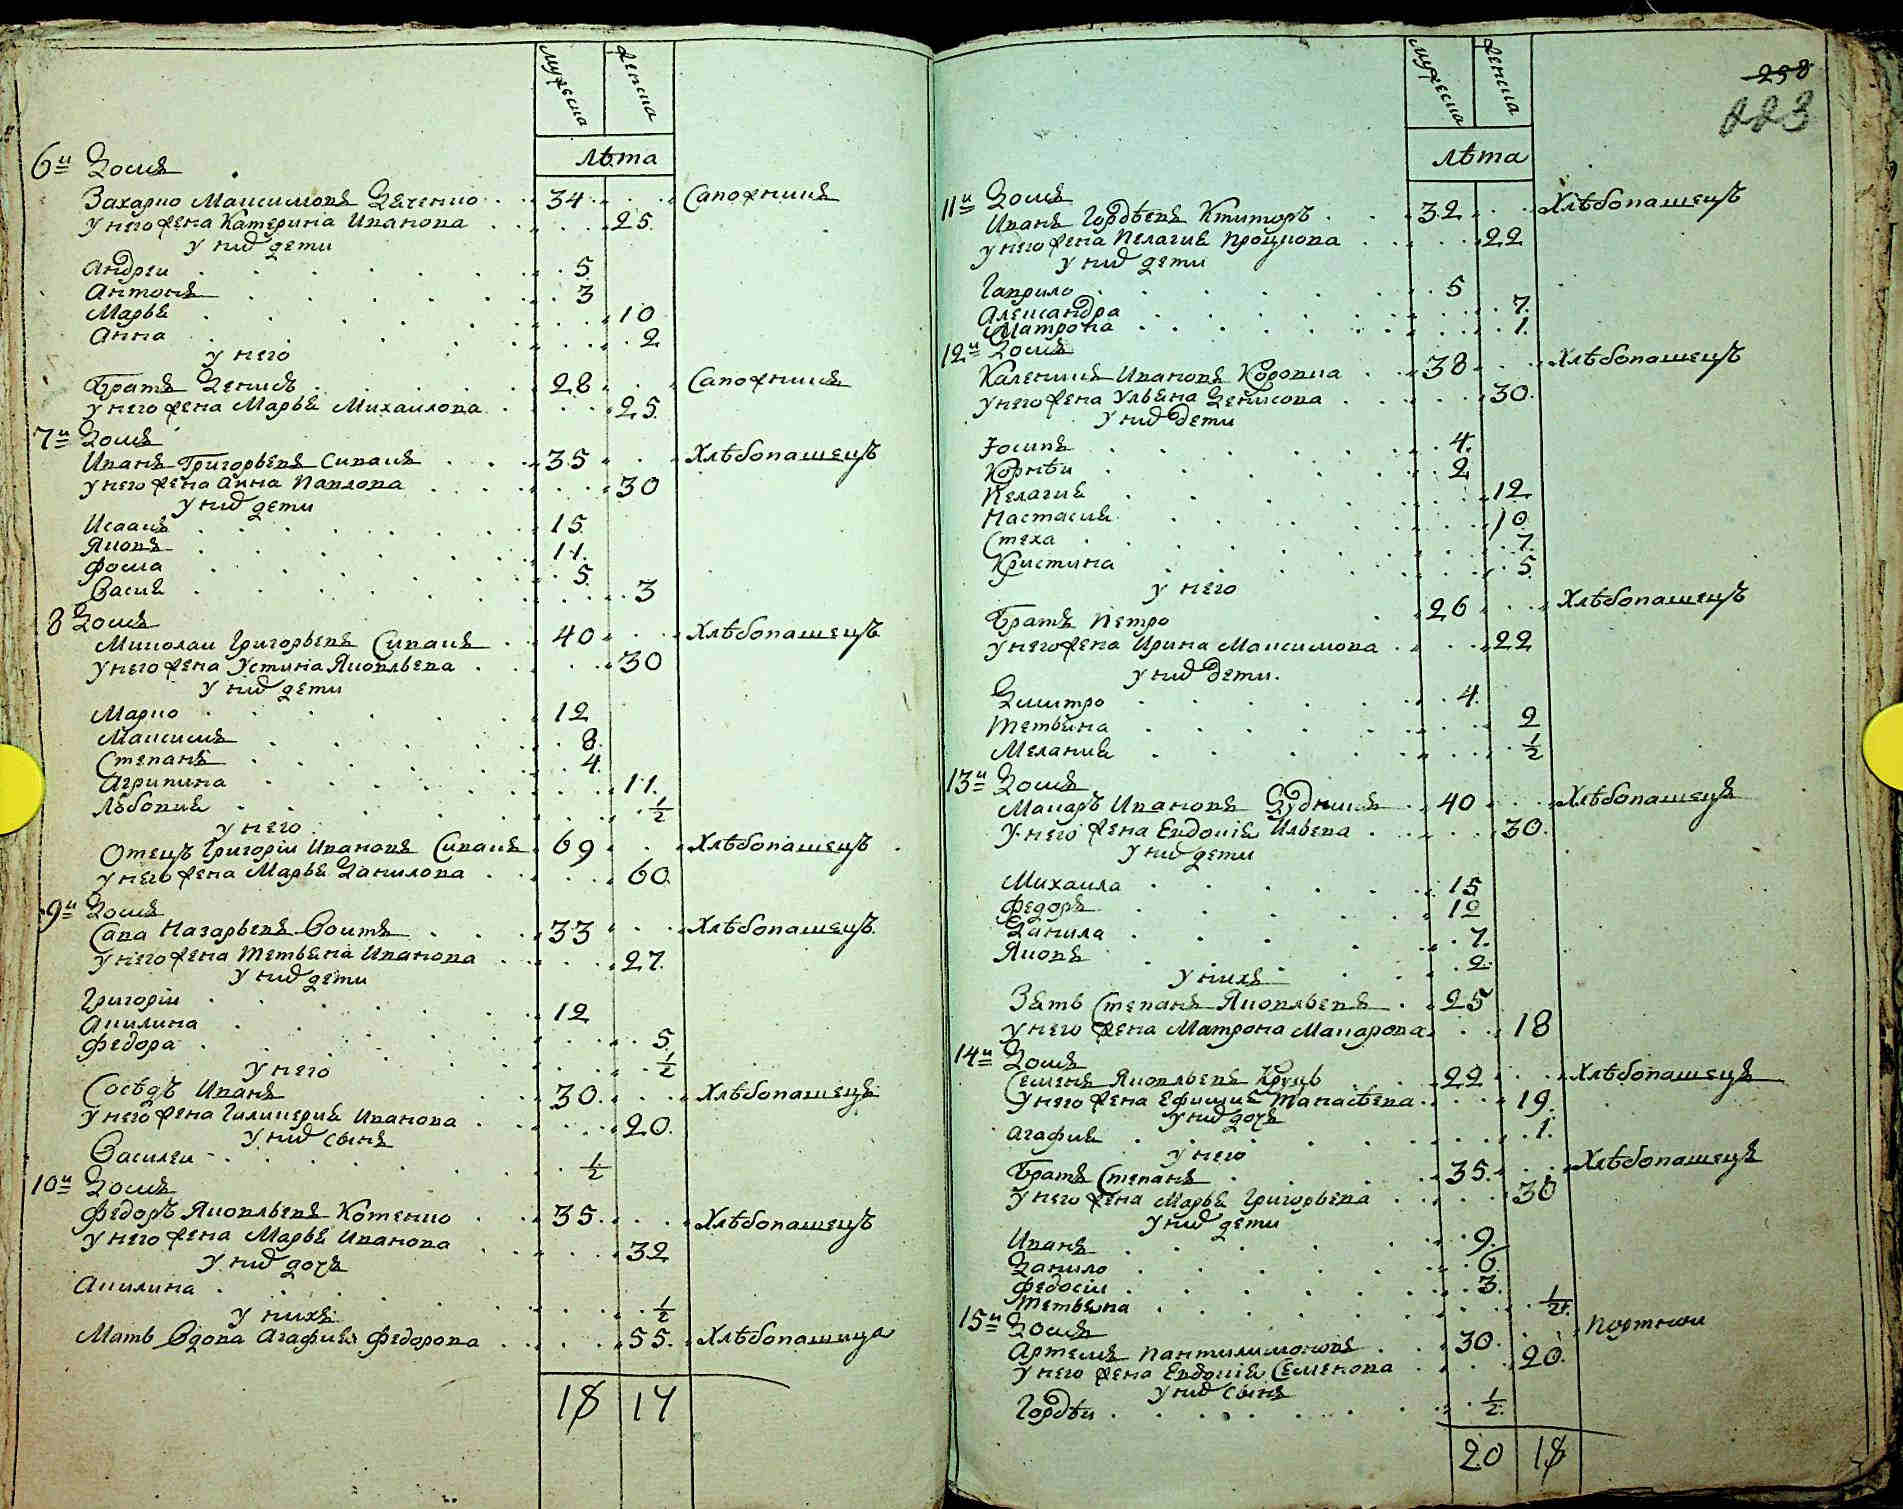 мужеска
женска
лѣта
6й Домъ
Захарко Максимовъ Даченко 34 Сапожникъ
у него жена Катерина Иванова 25
у них дети
Андреи 5
Антонъ 3
Марья 10
Анна 2
у него
братъ Денисъ 28 Сапожникъ
у него жена Марья Михаилова 25
7й Домъ
Иванъ Григорьевъ Сивакъ 35 Хлѣбопашецъ
у него жена Анна Павлова 30
у них дети
Исаакъ 15
Яковъ 11
Фома 5
Васья 3
8 Домъ
Миколаи Григорьевъ Сивакъ 40 Хлѣбопашецъ
у него жена Устина Яковлева 30
у них дети
Марко 12
Максимъ 8
Степанъ 4
Агрипина 11
Любовия ½
у него
Отецъ Григоріи Ивановъ Сивакъ 69 Хлѣбопашецъ
у него жена Марья Данилова 60
9й Домъ
Сава Назарьевъ Воитъ 33 Хлѣбопашецъ
у него жена Тетьяна Иванова 27
у них дети
Григоріи 12
Акилина 5
Федора ½
у него
Сосѣдъ Иванъ 30 Хлѣбопашецъ
у него жена Гликерия Иванова 20
у них сынъ
Василеи ½
10й Домъ
Федоръ Яковлевъ Котенко 35 Хлѣбопашецъ
у него жена Марья Иванова 32
у них дочъ
Акилина ½
у нихъ
Мать вдова Агафия Федорова 55 Хлѣбопашица
18 14
мужеска
женска
258
223
лѣта
11й Домъ
Иванъ Гордѣевъ Ктиторъ 32 Хлѣбопашецъ
у него жена Пелагия Процкова 22
у них дети
Гаврило 5
Александра 7
Матрона 1
12й Домъ
Каленикъ Ивановъ Коровка 38 Хлѣбопашецъ
у него жена Ульяна Денисова 30
у них дети
Іосипъ 4
Корнѣи 2
Пелагия 12
Настасия 10
Стеха 7
Кристина 5
у него
братъ Петро 26 Хлѣбопашецъ
у него жена Ирина Максимова 22
у них дети
Дмитро 4
Тетьяна 2
Мелания ½
13й Домъ
Макаръ Ивановъ Судникъ 40 Хлѣбопашецъ
у него жена Евдокія Ильева 30
у них дети
Михаила 15
Федоръ 12
Данила 7
Яковъ 2
у нихъ
Зять Степанъ Яковлевъ 25
у него жена Матрона Макарова 18
14й Домъ
Семенъ Яковлевъ Круць 22 Хлѣбопашецъ
у него жена Ефимия Танасѣева 19
у них дочъ
Агафия 1
у него
братъ Степанъ 35 Хлѣбопашецъ
у него жена Марья Григорьева 30
у них дети
Иванъ 9
Данило 6
Федосіи 3
Тетьяна ½
15й Домъ
Артемъ Пантилимоновъ 30 Портнои
у него жена Евдокія Семенова 20
у них сынъ
Гордѣи ½
20 18